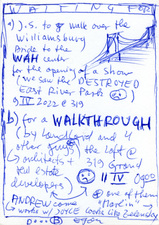 WAITING FOR
a) J.S. to walk over the
Williamsburg
Bridge to the
WAH center
for the opening of a show
(we saw the DESTROYED
East River Park
9 IV 2022 @ 319
b) for a WALKTHROUGH
(by Landlord and 4
other guys) the Loft @
architects + 319 Grand
real estate
developers
11 IV
ANDREW came
one of them
works w/ JOYCE looks like Zelensky